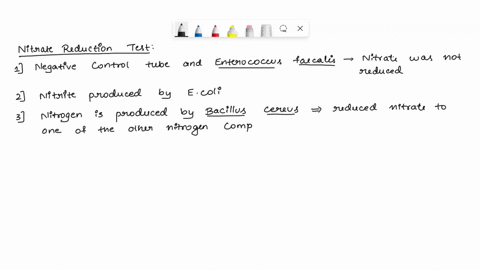 Nitrate Reduction Test:
1] Negative Control tube and Enterococcus faecalis → Nitrate was not
reduced
2] Nitrite produced by E.coli
3] Nitrogen is produced by Bacillus cereus ⇒ reduced nitrate to
one of the other nitrogen Comp